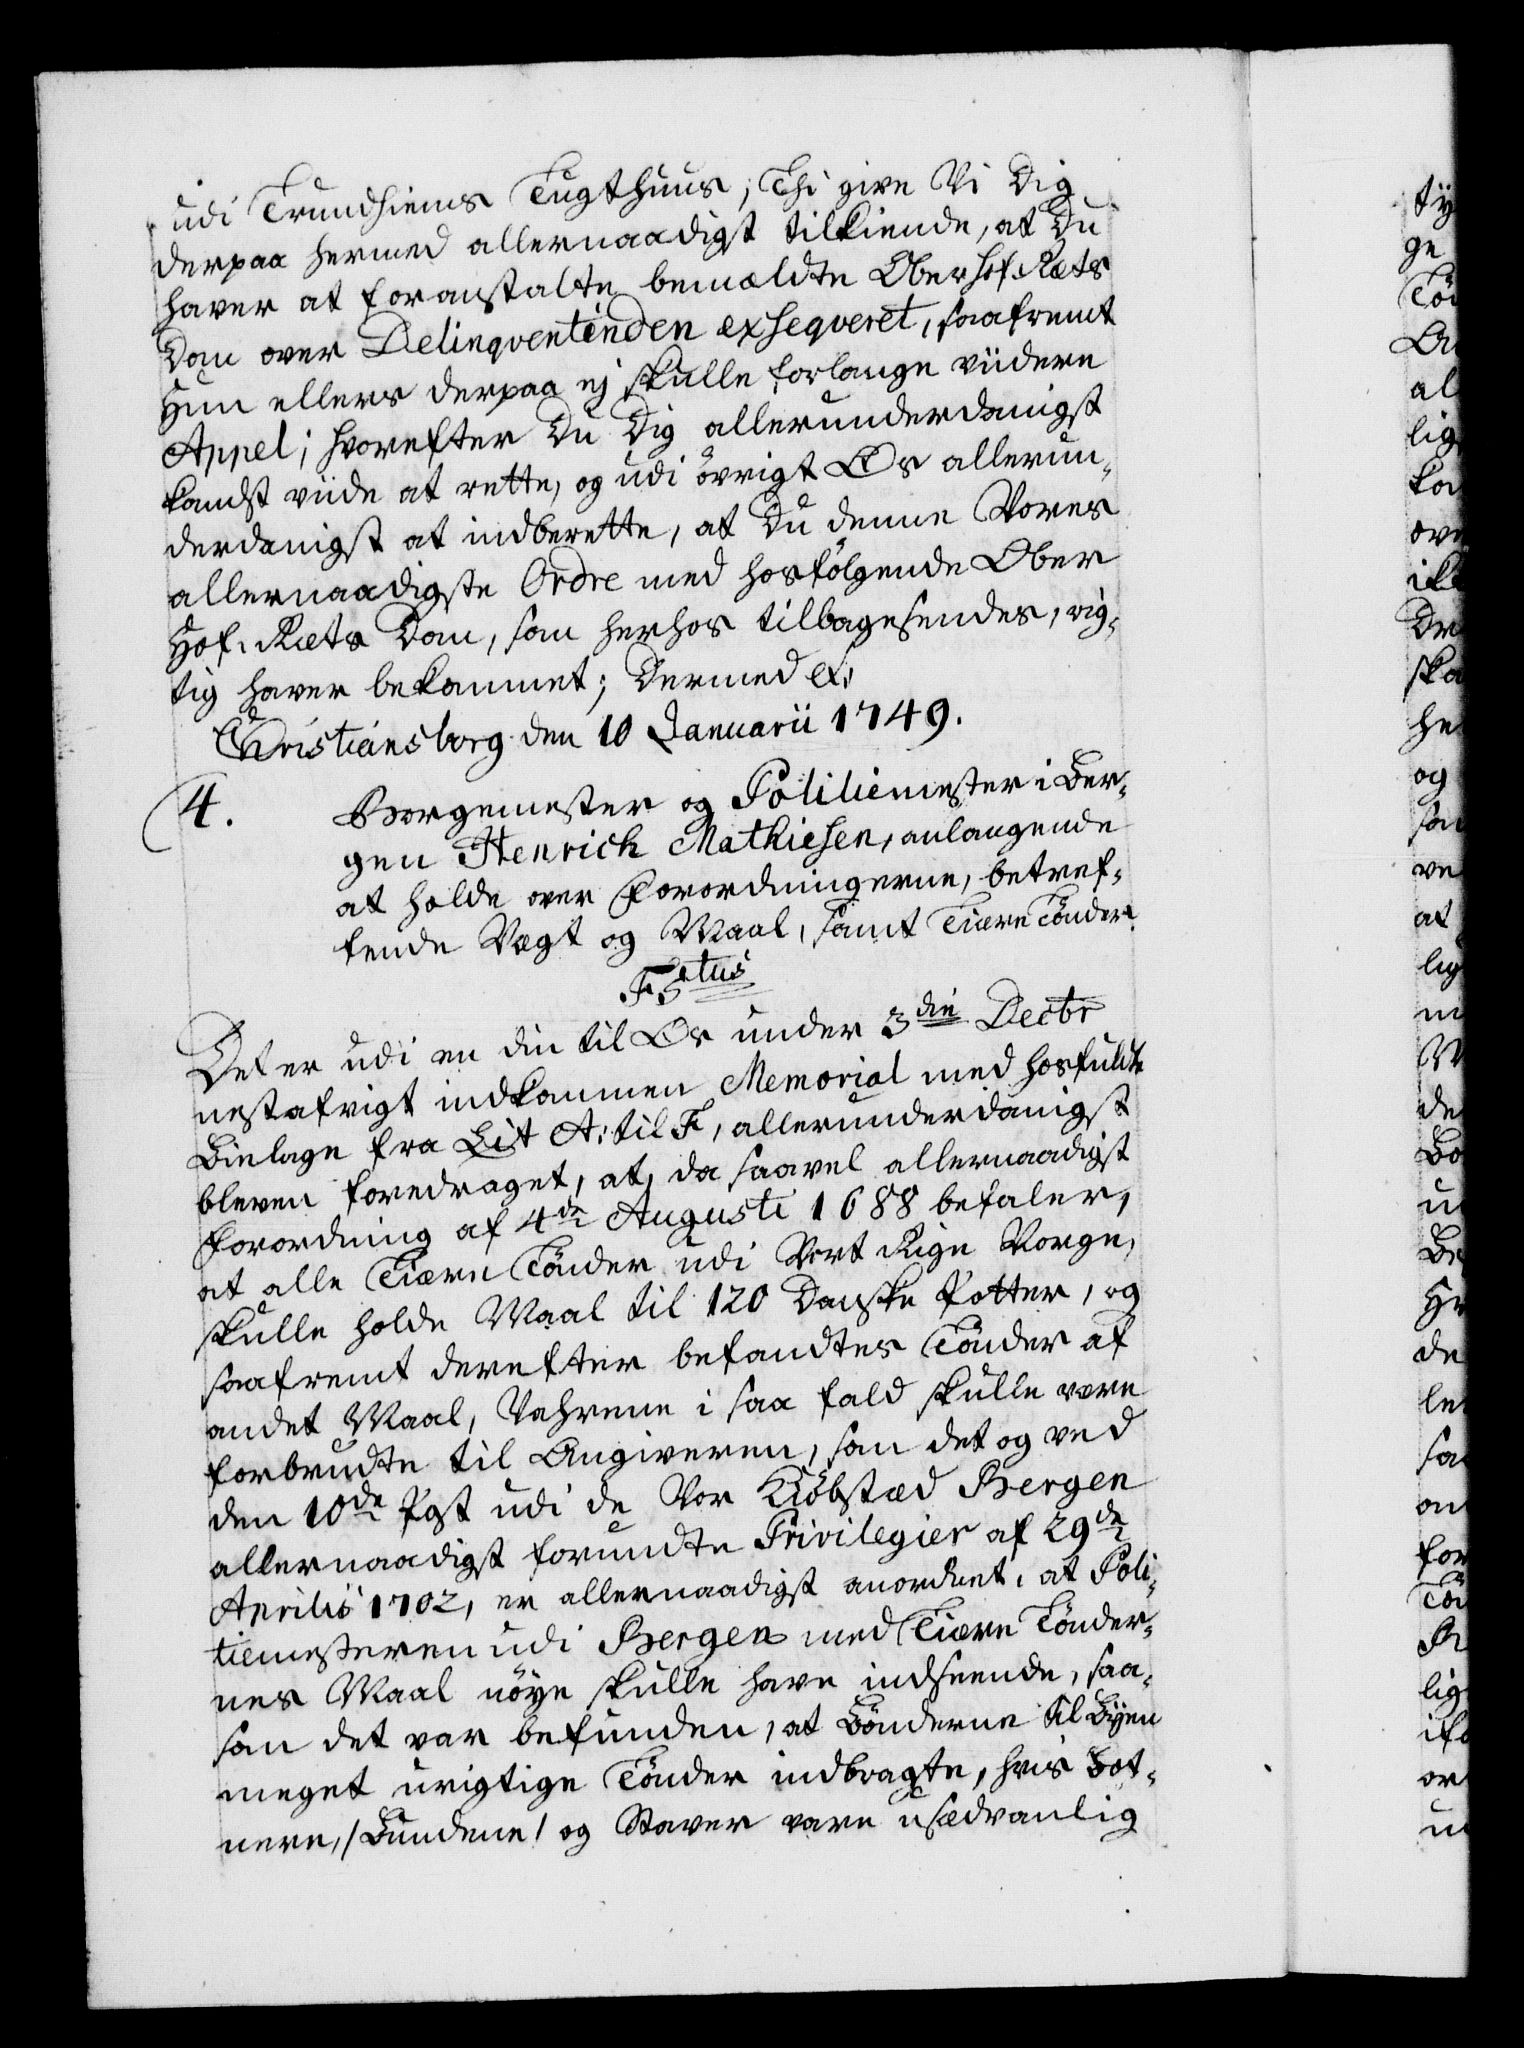 udi Trundhiems Tugthuus; Thi give Vi Dig
derpaa hermed allernaadigst tilkiende, at Du
haver at foranstalte bemældte Oberhof-Rets
Dom over Delinqventinden exseqveret, saafremt
Hun ellers derpaa ej skulle forlange viidere
Appel; hvorefter Du Dig allerunderdanigst
kandst viide at rette, og udi övrigt Os allerun-
derdanigst at indberette, at Du denne Vores
allernaadigste Ordre med hosfölgende Ober
Hof-Rets Dom, som herhos tilbagesendes, rig-
tig haver bekommet; Dermed &c:
Christiansborg den 10 Januarii 1749.
4.
Borgemester og Politiemester i Ber-
gen Henrich Mathiesen, anlangende
at holde over Forordningerne, betref-
fende Vegt og Maal, samt Tiære Tönder.
F 5tus
Det er udi en din til Os under 3die Decbr
nestafvigt indkommen Memorial med hosfuldte
Bielage fra Lit A: til F, allerunderdanigst
bleven foredraget, at, da saavel allernaadigst
Forordning af 4de Augusti 1688 befaler,
at alle Tiære Tönder udi Vort Rige Norge,
skulle holde Maal til 120 Danske Potter, og
saafremt derefter befandtes Tönder af
andet Maal, Vahrene i saa fald skulle være
forbrudte til Angiveren, som det og ved
den 10de Post udi de Vor Kiöbstæd Bergen
allernaadigst forundte Privilegier af 29de
Aprilis 1702, er allernaadigst anordnet, at Poli-
tiemesteren udi Bergen med Tiære Tönder-
nes Maal nöye skulle have indseende, saa-
som det var befunden, at Bönderne til Byen
meget urigtige Tönder indbragte, hvis Bot-
nere, /Bundene/ og Staver vare usædvanlig